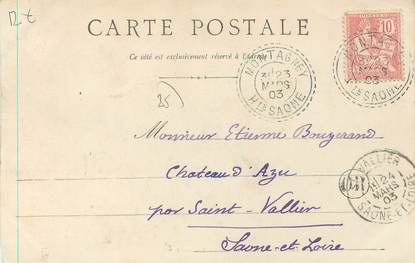 12 €
CARTE POSTALE
Ce côté est exclusivement réservé à l'adresse
MONTAGNEY
23
MARS
03
HTE SAONE
10
MARS
03
SAONE
25
Monsieur Etienne Bouzerand
Chateau d'Azu
par Saint-Vallier
Saone-et-Loire
VALLIER
24
MARS
03
SAONE-ET-LOIRE